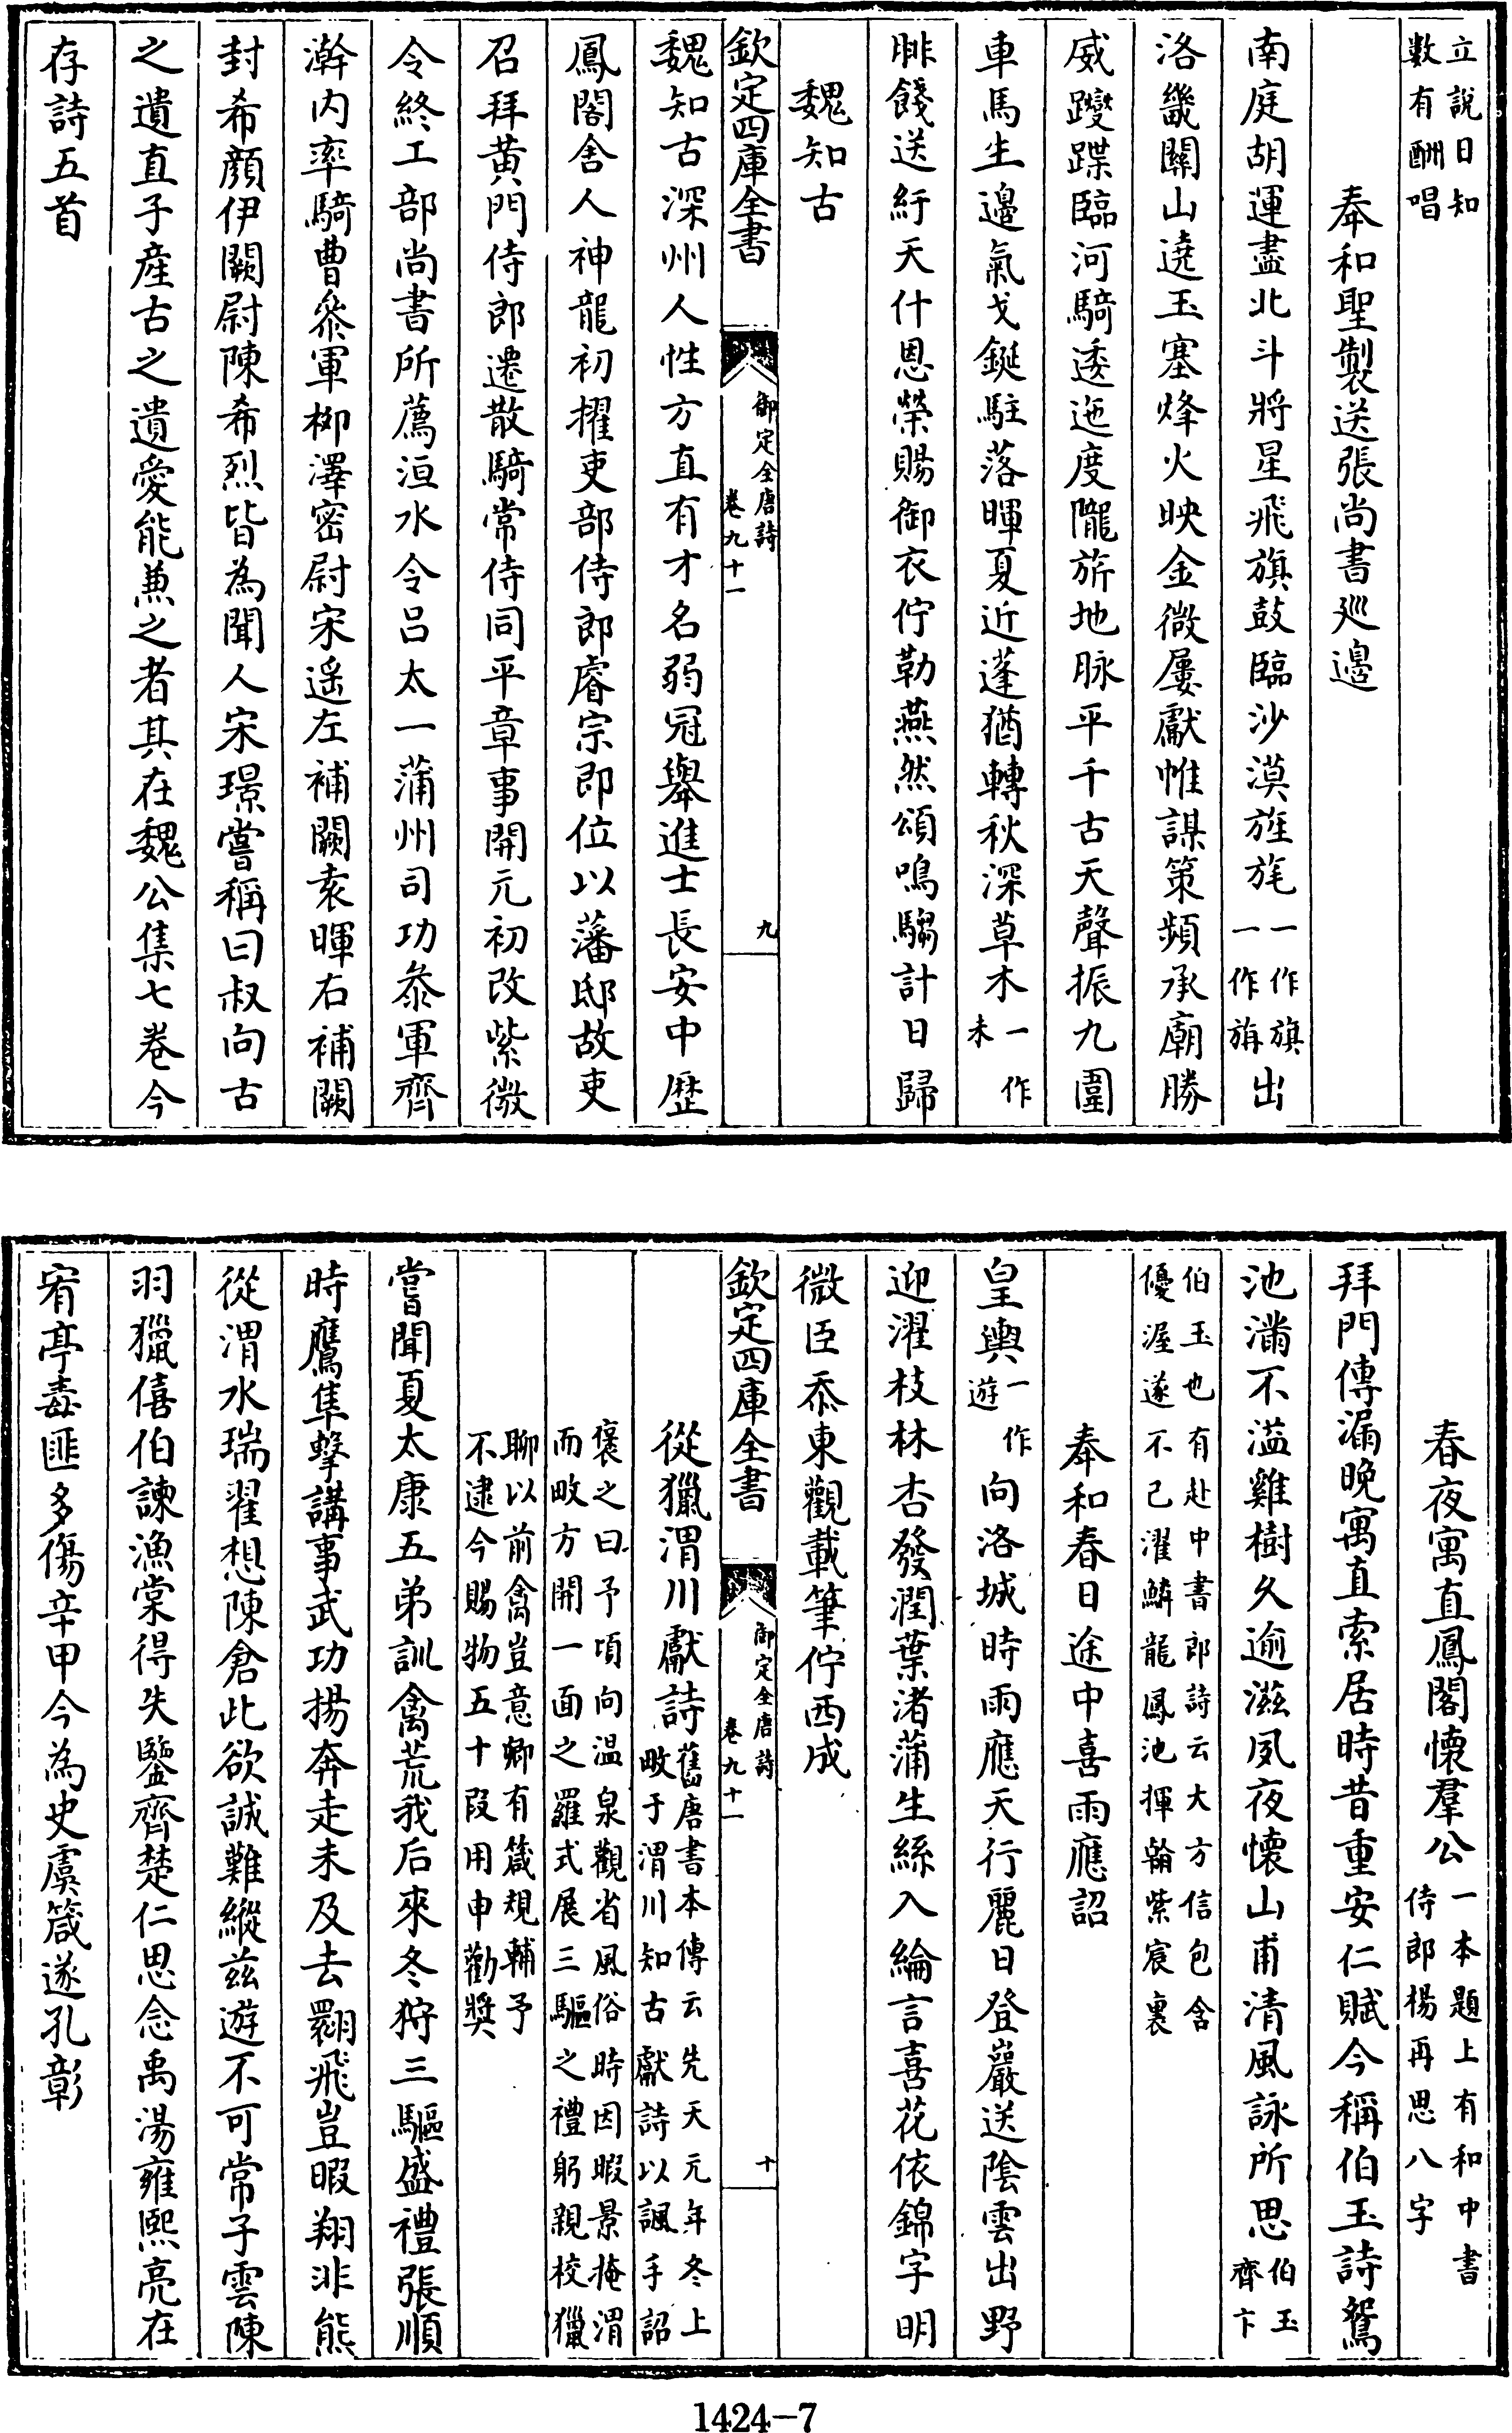 立說日知
數有酬唱
奉和聖製送張尚書巡邊
南庭胡運盡北斗將星飛旗鼓臨沙漠旌旄一作旗一作旃出
洛畿關山遶玉塞烽火映金微屢獻帷謀策頻承廟勝
威躞蹀臨河騎逶迤度隴旂地脉平千古天聲振九圍
車馬生邊氣戈鋋駐落暉夏近蓬猶轉秋深草木一作未
腓餞送紆天什恩榮賜御衣佇勒燕然頌鳴騶計日歸
魏知古
欽定四庫全書
御定全唐詩
卷九十一
九
魏知古深州人性方直有才名弱冠舉進士長安中歷
鳳閣舍人神龍初擢吏部侍郎睿宗即位以藩邸故吏
召拜黃門侍郎遷散騎常侍同平章事開元初改紫微
令終工部尚書所薦洹水令呂太一蒲州司功參軍齊
澣內率騎曹參軍柳澤密尉宋遙左補闕袁暉右補闕
封希顏伊闕尉陳希烈皆為聞人宋璟嘗稱曰叔向古
之遺直子產古之遺愛能兼之者其在魏公集七卷今
存詩五首
春夜寓直鳳閣懷羣公一本題上有和中書侍郎楊再思八字
拜門傳漏晚寓直索居時昔重安仁賦今稱伯玉詩鴛
池滿不溢雞樹久逾滋夙夜懷山甫清風詠所思伯玉齊卞
伯玉也有赴中書郎詩云大方信包含
優渥遂不已濯鱗龍鳳池揮翰紫宸裏
奉和春日途中喜雨應詔
皇輿一作遊向洛城時雨應天行麗日登巖送陰雲出野
迎濯枝林杏發潤葉渚蒲生絲入綸言喜花依錦字明
微臣忝東觀載筆佇西成
欽定四庫全書
御定全唐詩
卷九十一
十
從獵渭川獻詩舊唐書本傳云先天元年冬上畋于渭川知古獻詩以諷手詔
褒之曰予頃向溫泉觀省風俗時因暇景掩渭
而畋方開一面之羅式展三驅之禮躬親校獵
聊以前禽豈意卿有箴規輔予
不逮今賜物五十段用申勸獎
嘗聞夏太康五弟訓禽荒我后來冬狩三驅盛禮張順
時鷹隼擊講事武功揚奔走未及去翾飛豈暇翔非熊
從渭水瑞翟想陳倉此欲誠難縱茲遊不可常子雲陳
羽獵僖伯諫漁棠得失鑒齊楚仁思念禹湯雍熙亮在
宥亭毒匪多傷辛甲今為史虞箴遂孔彰
1424-7